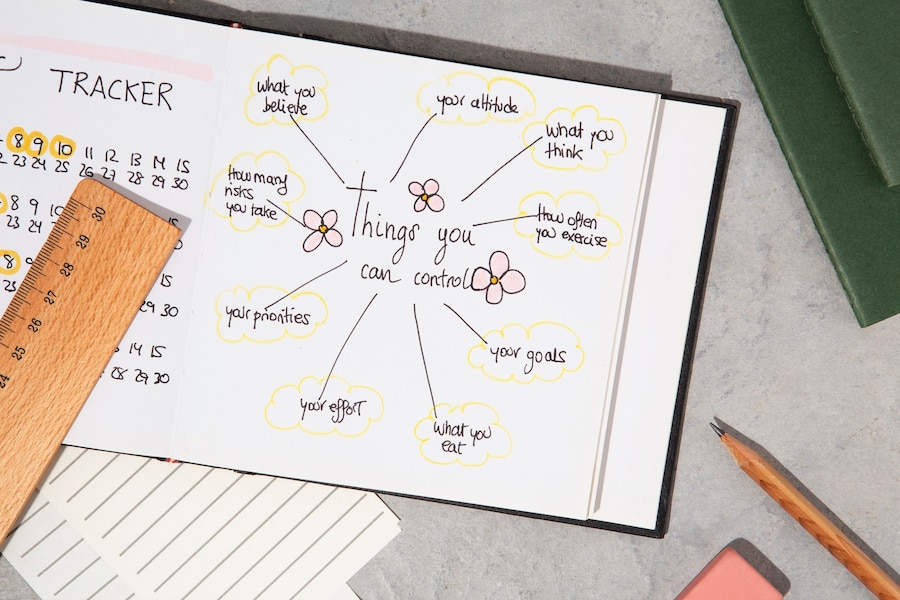 TRACKER
8 9 10 11 12 13 14 15
23 24 25 26 27 28 29 30
8 9 10
23 24
15
29 30
8
15
29 30
14 15
28 29 30
30
29
28
27
26
25
24
what you
believe
your attitude
what you
think
How many
risks
you take
How often
you exercise
Things you
can control
your priorities
your goals
your effort
what you
eat